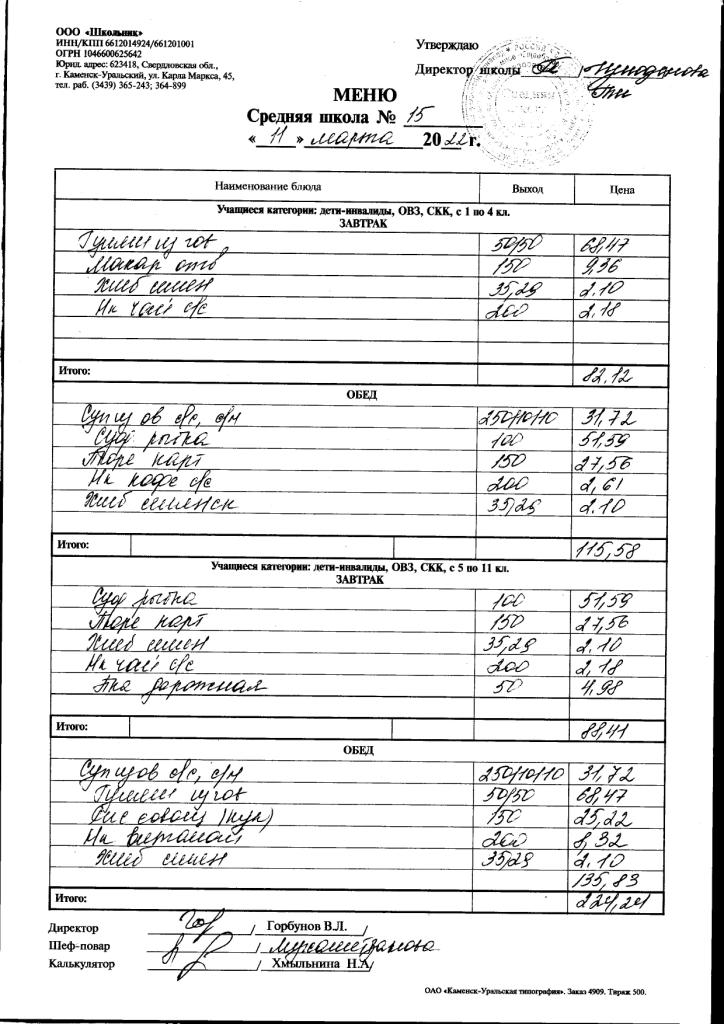 ООО «Школьник»
ИНН/КПП 6612014924/661201001
ОГРН 1046600625642
Юрид. адрес: 623418, Свердловская обл.,
г. Каменск-Уральский, ул. Карла Маркса, 45,
тел. раб. (3439) 365-243; 364-899
Утверждаю
Директор школы
МЕНЮ
Средняя школа № 15
« 11 » марта 2022 г.
Наименование блюда Выход Цена
Учащиеся категории: дети-инвалиды, ОВЗ, СКК, с 1 по 4 кл.
ЗАВТРАК
Гуляш из гов 50/50 68,47
Макар отв 150 9,36
Хлеб смен 35,29 2.10
Нк чай с/с 200 2.18
Итого: 82.12
ОБЕД
Суп из ов с/с, с/м 250/10/10 31,72
Суф рыбка 100 51,59
Пюре карт 150 27,56
Нк кофе с/с 200 2,61
Хлеб 35,29 2.10
Итого: 115,58
Учащиеся категории: дети-инвалиды, ОВЗ, СКК, с 5 по 11 кл.
ЗАВТРАК
Суф рыбка 100 51,59
Пюре карт 150 27,56
Хлеб смен 35,29 2.10
Нк чай с/с 200 2,18
дорожная 50 4,98
Итого: 88,41
ОБЕД
Суп из ов с/с, с/м 250/10/10 31,72
Гуляш из гов 50/50 68,47
Рис с овощ (кук) 150 25,22
Нк Витошка 200 8,32
Хлеб смен 35,29 2.10
135,83
Итого: 224,24
Директор / Горбунов В.Л. /
Шеф-повар /
Калькулятор / Хмыльнина Н.А/
ОАО «Каменск-Уральская типография». Заказ 4909. Тираж 500.